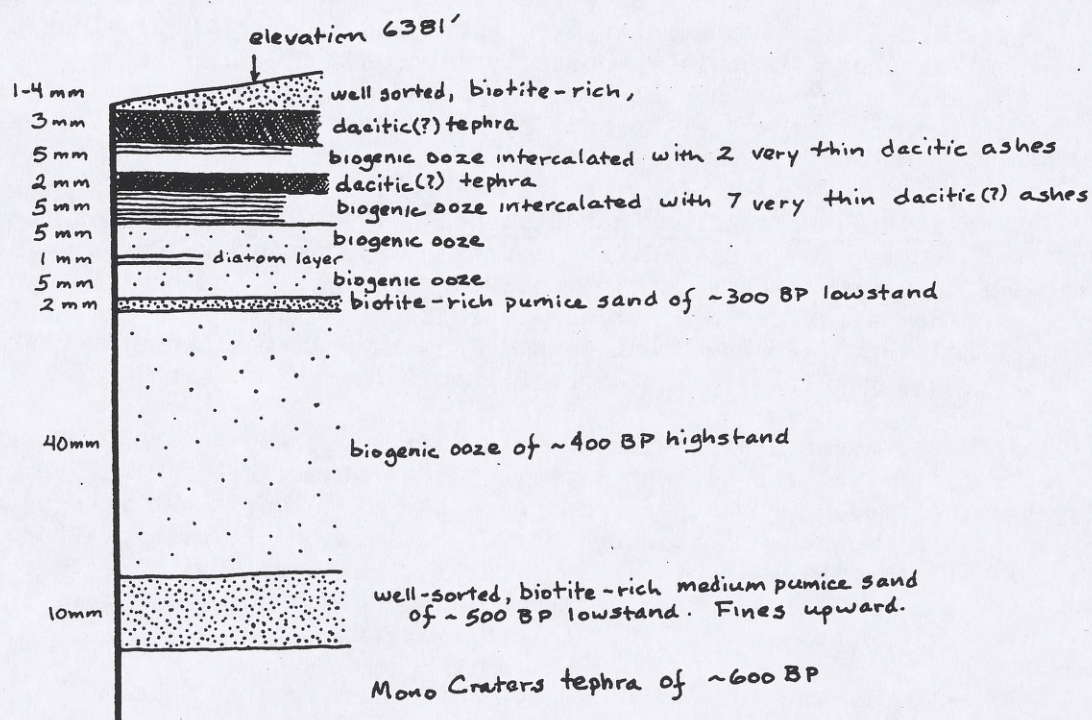 elevation 6381'
1-4 mm well sorted, biotite-rich,
3 mm dacitic(?) tephra
5 mm biogenic ooze intercalated with 2 very thin dacitic ashes
2 mm dacitic(?) tephra
5 mm biogenic ooze intercalated with 7 very thin dacitic(?) ashes
5 mm biogenic ooze
1 mm diatom layer
5 mm biogenic ooze
2 mm biotite-rich pumice sand of ~300 BP lowstand
40mm biogenic ooze of ~400 BP highstand
well-sorted, biotite-rich medium pumice sand
10mm of ~500 BP lowstand. Fines upward.
Mono Craters tephra of ~600 BP